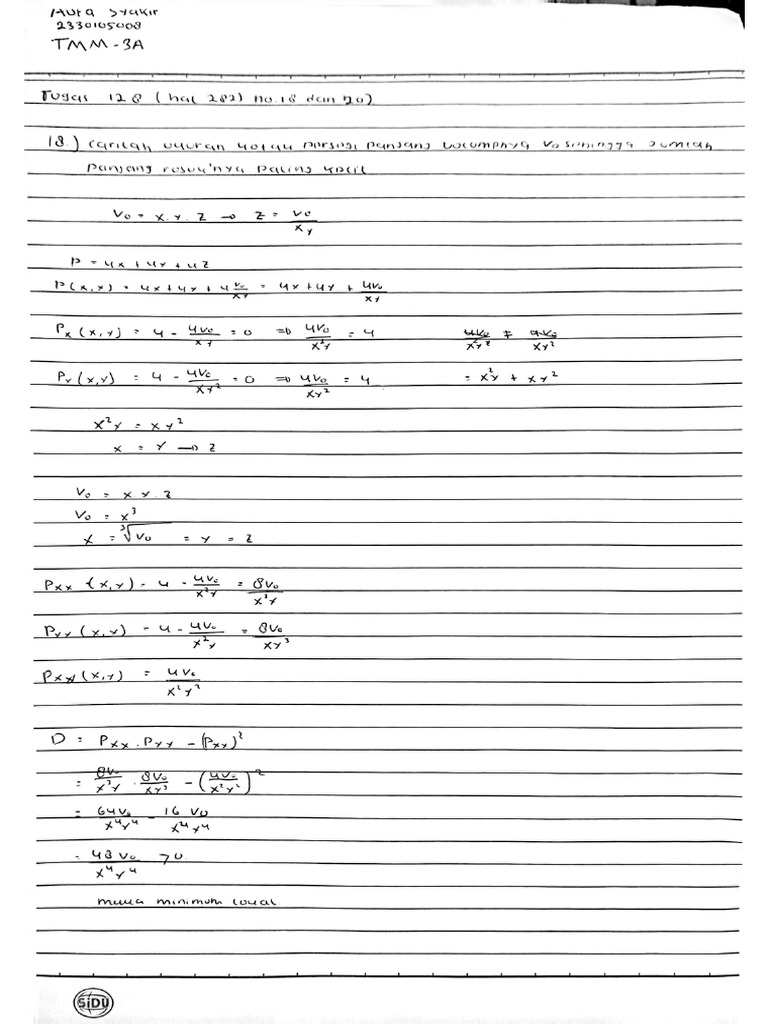 Aura Syakir
2330105008
TMM - 3A
Tugas 12.8 (hal 282) no.18 dan 20)
18.) Carilah ukuran kotak persegi panjang volumenya Vo sehingga jumlah
panjang rusuk'nya paling kecil
Vo = x.y.z → z = Vo/xy
P = 4x + 4y + 4z
P(x,y) = 4x + 4y + 4 Vo/xy = 4x + 4y + 4Vo/xy
Px (x,y) = 4 - 4Vo/xy = 0 ⇒ 4Vo/x²y = 4 4Vo/x²y = 4Vo/xy²
Py (x,y) = 4 - 4Vo/xy² = 0 ⇒ 4Vo/xy² = 4 = x²y + xy²
x²y = xy²
x = y → z
Vo = x.y.z
Vo = x³
x = ³√Vo = y = z
Pxx (x,y) = 4 - 4Vo/x²y = 8Vo/x³y
Pyy (x,y) = 4 - 4Vo/x²y = 8Vo/xy³
Pxy (x,y) = 4Vo/x²y²
D = Pxx . Pyy - (Pxy)²
= 8Vo/x³y . 8Vo/xy³ - (4Vo/x²y²)²
= 64Vo/x⁴y⁴ - 16 Vo/x⁴y⁴
= 48Vo/x⁴y⁴ > 0
maka minimum lokal
SiDU